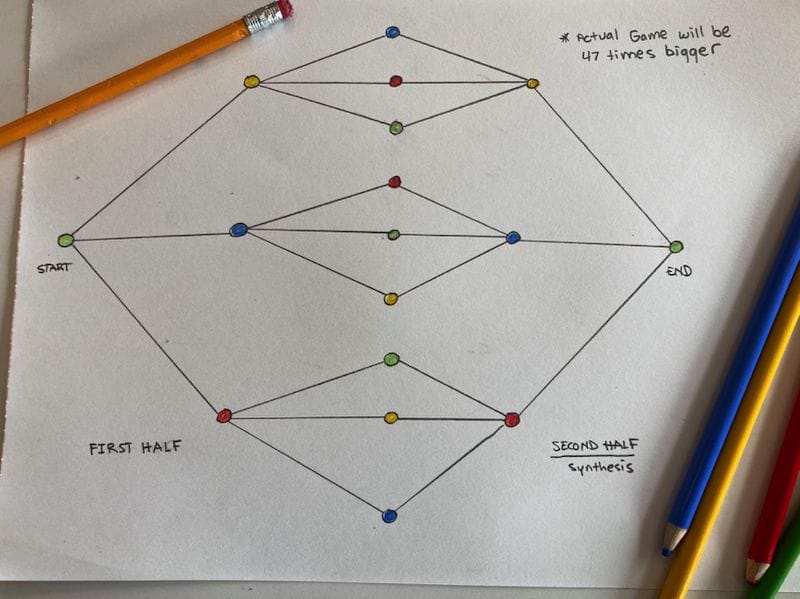 * Actual Game will be
47 times bigger
START
END
FIRST HALF
SECOND HALF
Synthesis